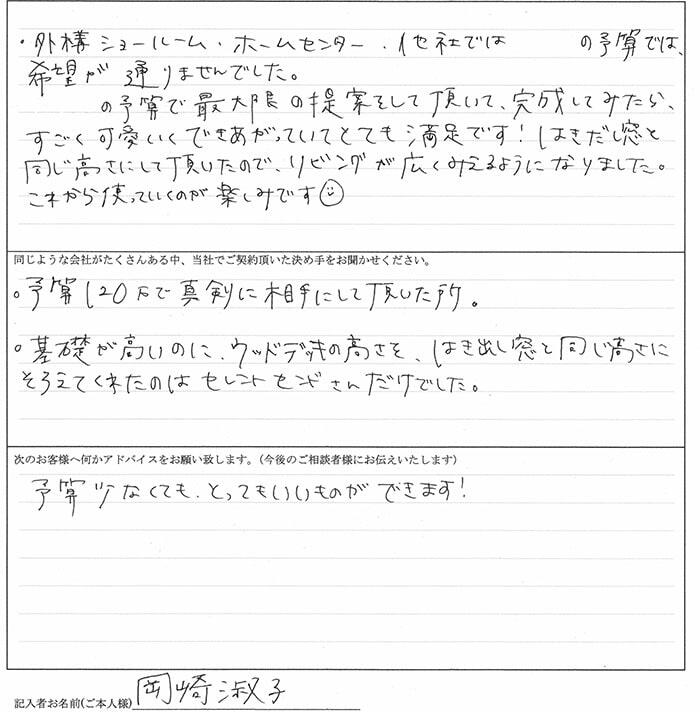 ・外構ショールーム・ホームセンター・他社では の予算では、
希望が通りませんでした。
の予算で最大限の提案をして頂いて、完成してみたら、
すごく可愛いくできあがっていてとても満足です！はきだし窓と
同じ高さにして頂いたので、リビングが広くみえるようになりました。
これから使っていくのが楽しみです☺
同じような会社がたくさんある中、当社でご契約頂いた決め手をお聞かせください。
。予算120万で真剣に相手にして頂いた所。
。基礎が高いのに、ウッドデッキの高さを、はき出し窓と同じ高さに
そろえてくれたのはセレントセンドさんだけでした。
次のお客様へ何かアドバイスをお願い致します。（今後のご相談者様にお伝えいたします）
予算少なくても、とってもいいものができます！
記入者お名前(ご本人様) 岡崎淑子